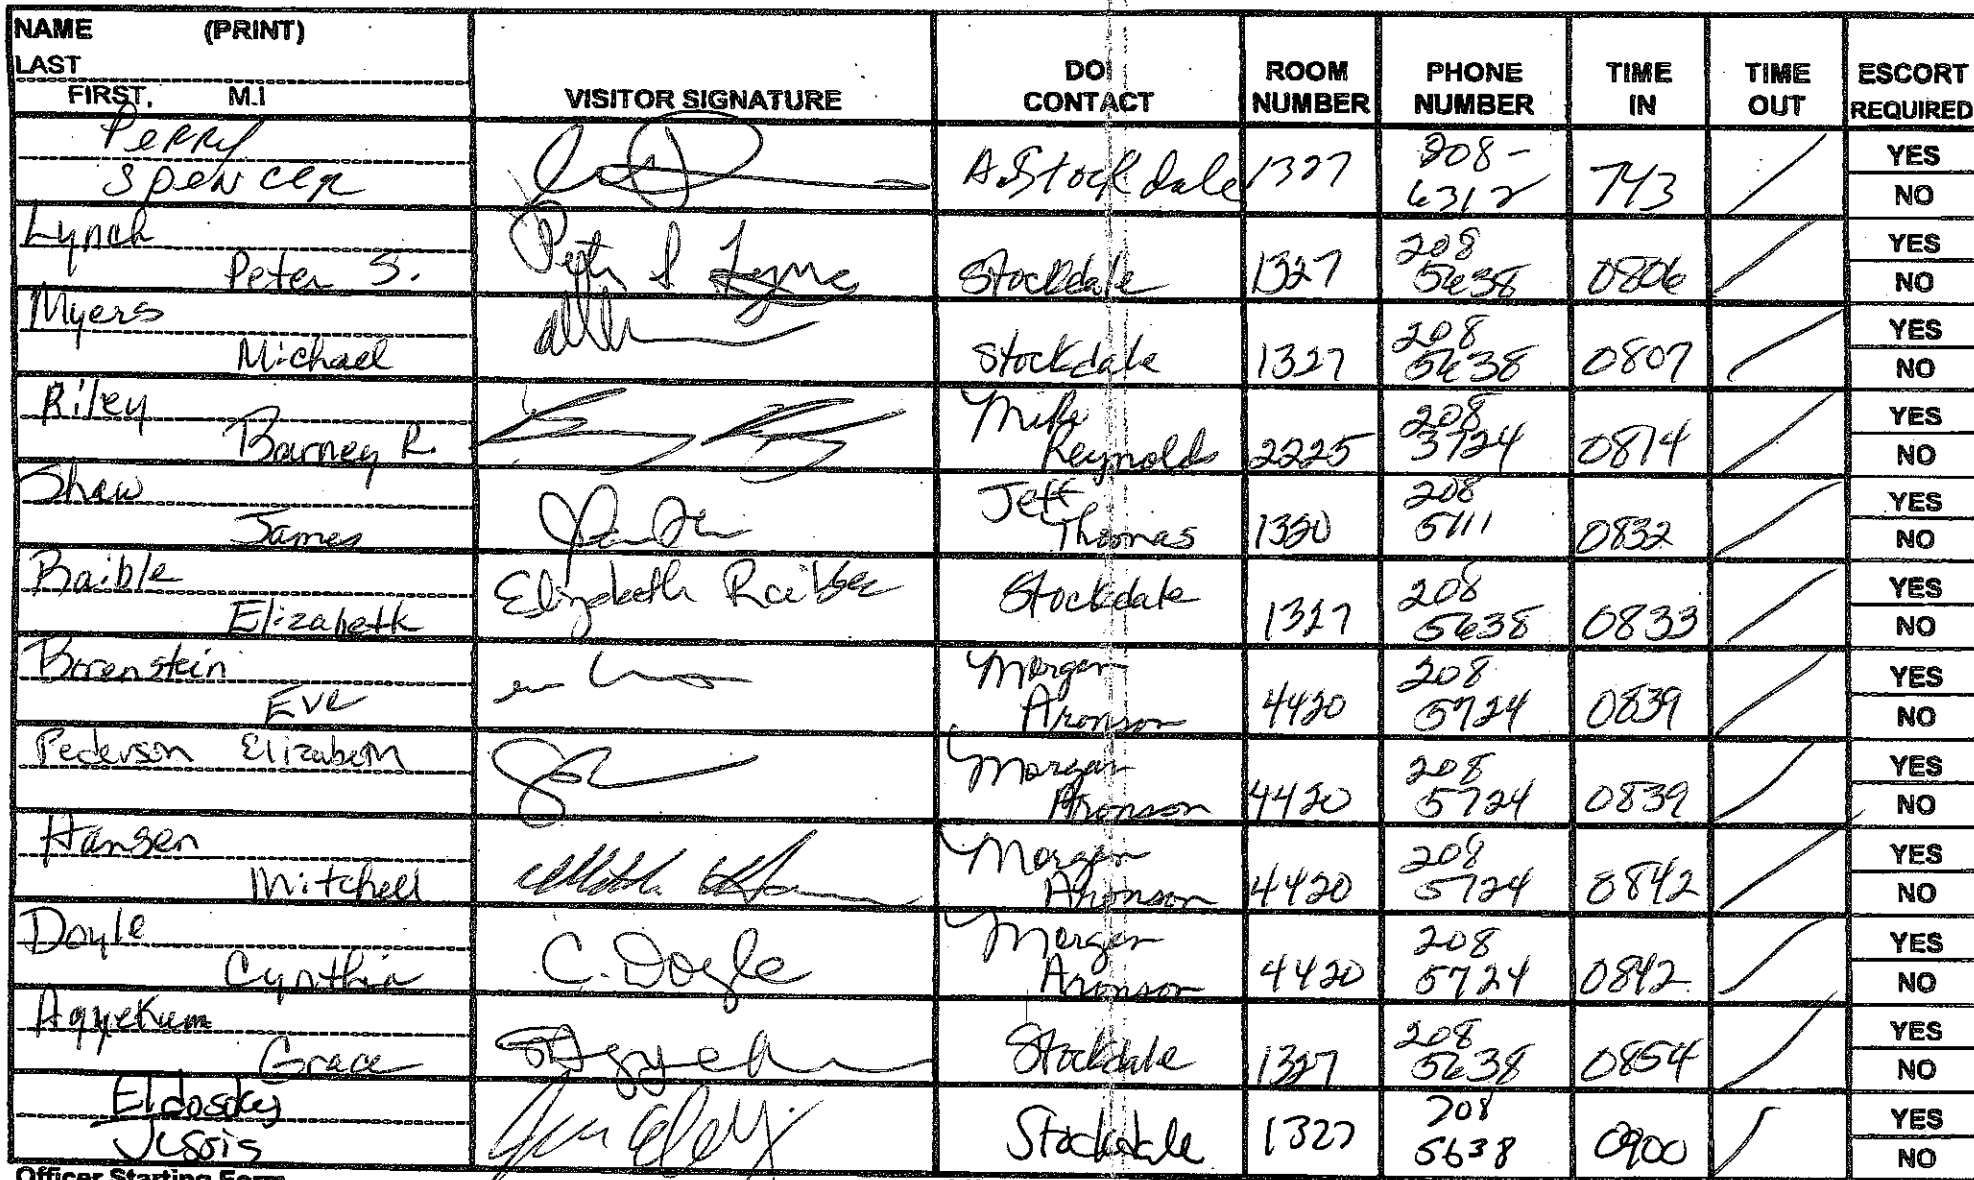 NAME (PRINT)
LAST
FIRST, M.I
VISITOR SIGNATURE
DOI CONTACT
ROOM NUMBER
PHONE NUMBER
TIME IN
TIME OUT
ESCORT REQUIRED
Perry
Spencer
A. Stockdale 1327 208-6312 743 YES NO
Lynch
Peter S.
Peter S Lync
Stockdale 1327 208 5638 0806 YES NO
Myers
Michael
Stockdale 1327 208 5638 0807 YES NO
Riley
Barney R.
Mike Reynolds 2225 208 3724 0814 YES NO
Shaw
James
Jeff Thomas 1350 208 5111 0832 YES NO
Baible
Elizabeth
Elizabeth
Stockdale 1327 208 5638 0833 YES NO
Borenstein
Eve
Morgan Aronson 4420 208 5724 0839 YES NO
Pederson Elizabeth
Morgan Aronson 4420 208 5724 0839 YES NO
Hansen
Mitchell
Morgan Aronson 4420 208 5724 0842 YES NO
Doyle
Cynthia
C. Doyle
Morgan Aronson 4420 208 5724 0842 YES NO
Agyekum
Grace
Stockdale 1327 208 5638 0854 YES NO
Stockdale 1327 208 5638 0900 YES NO
Officer Starting Form